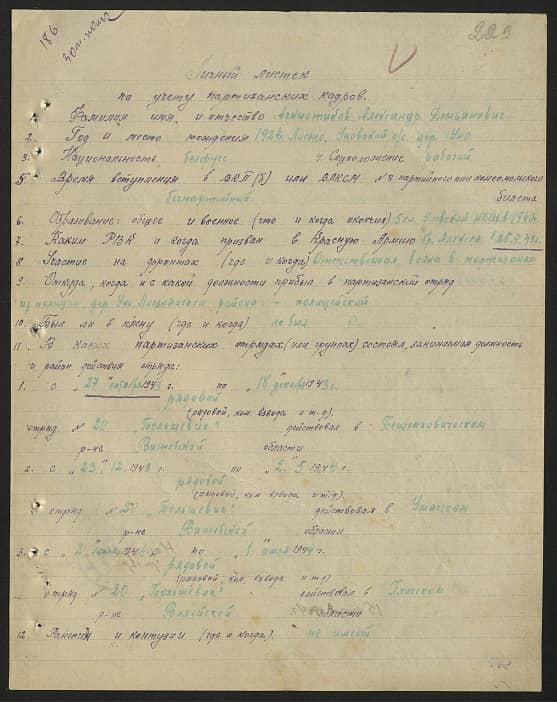 186
223
Личный листок
по учету партизанских кадров.
1. Фамилия имя и отчество Александр Демьянович
2. Год и место рождения 1924 с/с дер. Уно
3. Национальность белорус 4. Соцположение рабочий
5. Время вступления в ВКП(б) или ВЛКСМ № партийного или комсомольского
беспартийный билета
6. Образование: общее и военное (что и когда окончил) 5 кл.
7. Каким РВК и когда призван в Красную Армию
8. Участие на фронтах (где и когда) Отечественная война в партизанах
9. Откуда, когда и с какой должности прибыл в партизанский отряд
из полиции, дер. Уно района - полицейский
10. Был ли в плену (где и когда) не был
11. В каких партизанских отрядах (или группах) состоял, занимаемая должность
и район действия отряда:
1. с "27" октября 1943 г. по "18" декабря 1943 г.
рядовой
(рядовой, ком. взвода и т.д.)
отряд № 20 "Большевик" действовал в Бешенковическом
р-не Витебской области
2. с "23" 12 1943 г. по "2" 5 1944 г.
рядовой
(рядовой, ком взвода и т.д).
отряд № 20 "Большевик" действовал в Ушачском
р-не Витебской области
3. с "2" 194 г. по "1" июля 1944 г.
рядовой
(рядовой, ком. взвода и т.д)
отряд № 20 "Большевик" действовал в Плисском
р-не Вилейской области
12. Ранения и контузии (где и когда). не имеет